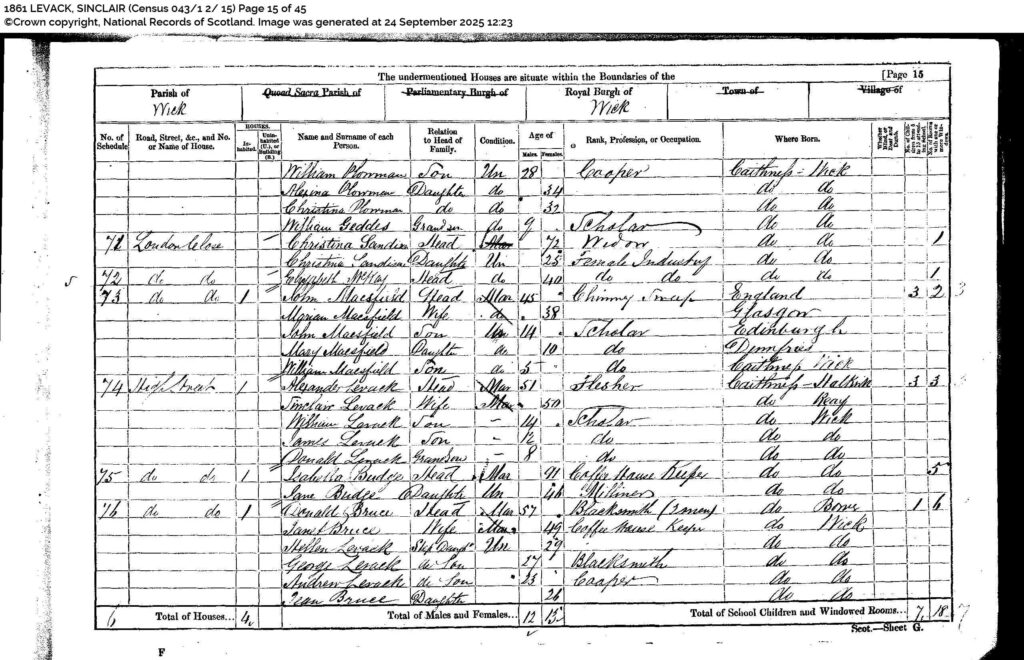 1861 LEVACK, SINCLAIR (Census 043/1 2/ 15) Page 15 of 45
©Crown copyright, National Records of Scotland. Image was generated at 24 September 2025 12:23
The undermentioned Houses are situate within the Boundaries of the [Page 15
Parish of Quoad Sacra Parish of Parliamentary Burgh of Royal Burgh of Town of Village of
Wick Wick
No. of Schedule Road, Street, &c., and No. or Name of House. HOUSES. Inhabited Uninhabited (U.), or Building (B.) Name and Surname of each Person. Relation to Head of Family. Condition. Age of Males. Females. Rank, Profession, or Occupation. Where Born.
William Plowman Son Un 28 Cooper Caithness - Wick
Alexina Plowman Daughter do 34 do do
Christina Plowman do do 32 do do
William Geddes Grandson do 9 Scholar do do
71 London Close Christina Head Mar 72 Widow do do 1
Christina Daughtr Un 25 Female Industry do do
5 72 do do Elizabeth McKay Head do 40 do do do do 1
73 do do 1 John Macsfield Head Mar 45 Chimney Sweep England 3 2 3
Marian Macsfield Wife do 38 Glasgow
John Macsfield Son Un 14 Scholar Edinburgh
Mary Macsfield Daughter do 10 do Dumfries
William Macsfield Son do 5 do Caithness Wick
74 High Street 1 Alexander Levack Head Mar 51 Flesher Caithness - Halkirk 3 3 3
Sinclair Levack Wife Mar 50 do Reay
William Levack Son - 14 Scholar do Wick
James Levack Son - 12 do do do
Donald Levack Grandson - 8 do do do
75 do do 1 Isabella Budge Head Mar 91 Coffee House Keeper do do 5
Jane Budge Daughter Un 46 Milliner do do
76 do do 1 Donald Bruce Head Mar 57 Blacksmith (2 men) do Bower 1 6
Janet Bruce Wife Mar 49 Coffee House Keeper do Wick
Hellen Levack Step Daugr Un 29 do do
George Levack do Son 27 Blacksmith do do
Andrew Levack do Son 23 Cooper do do
Jean Bruce Daughter 26 do do
6 Total of Houses... 4 Total of Males and Females... 12 13 Total of School Children and Windowed Rooms... 7 18 7
Scot.—Sheet G.
F